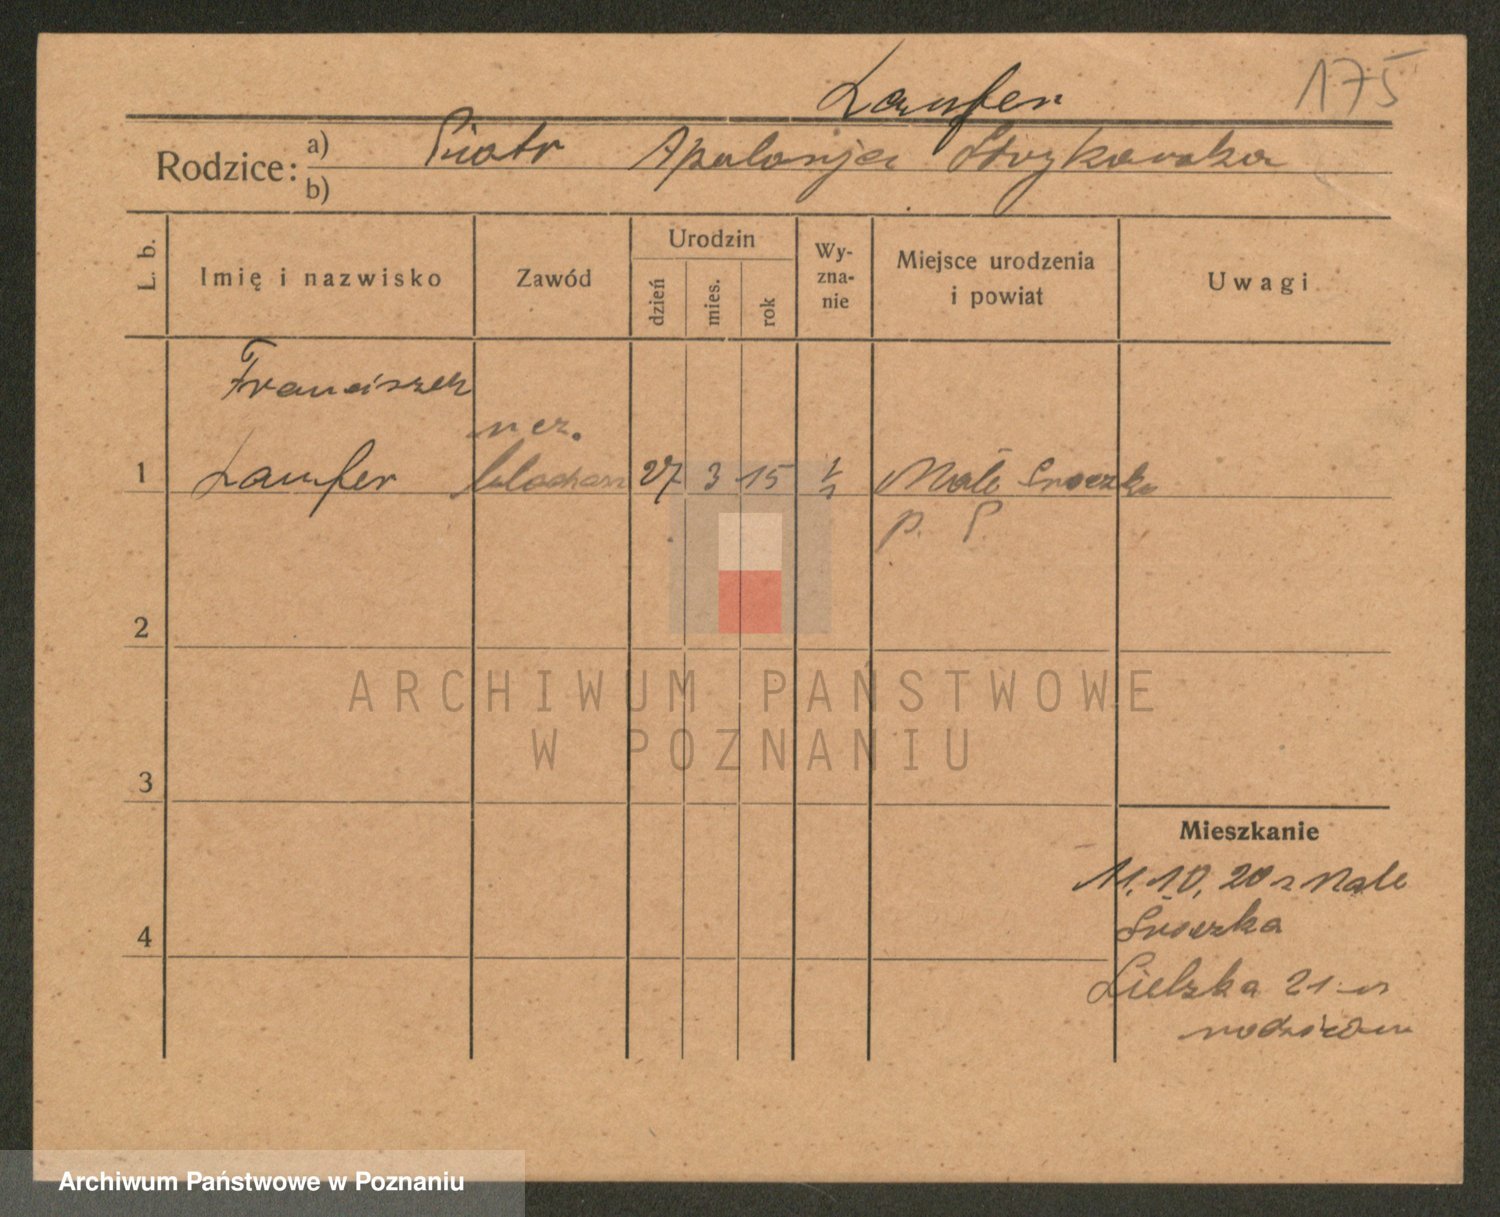 175
Laufer
Rodzice: a) Piotr Apolonja Strykowska
b)
L. b.
Imię i nazwisko
Zawód
Urodzin
dzień
mies.
rok
Wy-
zna-
nie
Miejsce urodzenia
i powiat
Uwagi
Franciszek
ucz.
1 Laufer 27 3 15 Małe Sroczko
p. Ś.
2
3
4
Mieszkanie
11.10.20 z Małe
Sroczka
Sielska 21 u
rodziców
ARCHIWUM PAŃSTWOWE
W POZNANIU
Archiwum Państwowe w Poznaniu